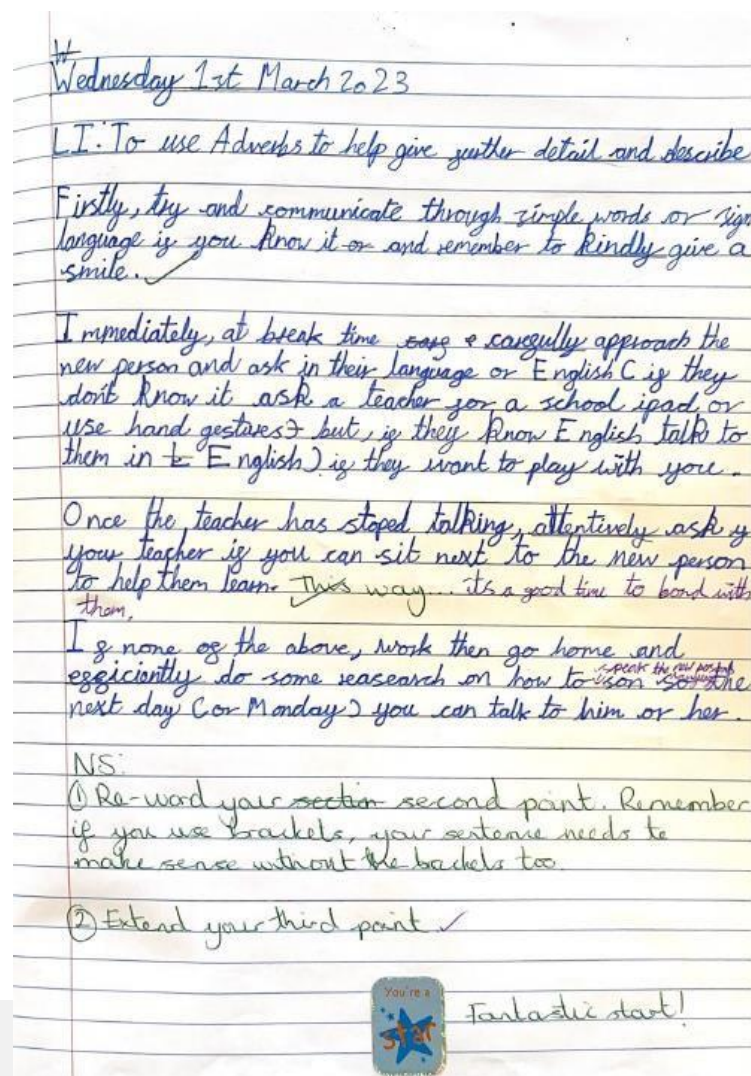 Wednesday 1st March 2023
LI: To use Adverbs to help give further detail and describe
Firstly, try and communicate through simple words or sign
language if you know it or and remember to kindly give a
smile.
Immediately, at break time carefully approach the
new person and ask in their language or English (if they
don't know it ask a teacher for a school ipad or
use hand gestures but, if they know English talk to
them in English) if they want to play with you.
Once the teacher has stoped talking, attentively ask y
your teacher if you can sit next to the new person
to help them learn. This way... its a good time to bond with
them,
If none of the above, work then go home and
speak the new persons
efficiently do some reasearch on how to so the
next day (or Monday) you can talk to him or her.
NS:
① Re-word your section second point. Remember
if you use brackets, your sentence needs to
make sense without the brackets too.
② Extend your third point ✓
You're a
star
Fantastic start!